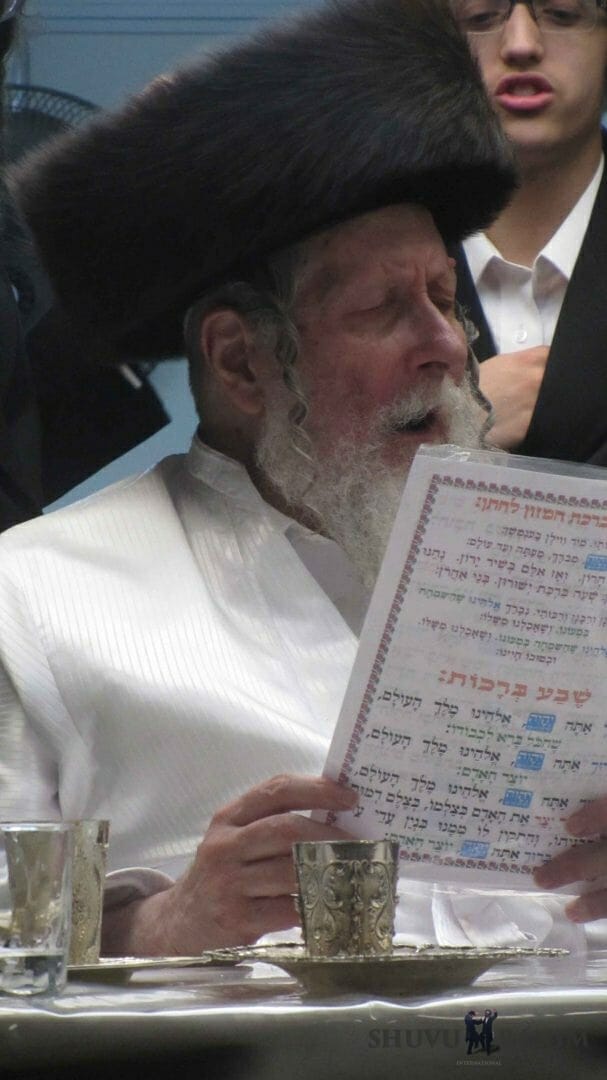 ברכת המזון לחתן:
מיר וויל'ן בענטשן:
מבורך, מעתה ועד עולם:
ואז אלם בשיר ירון. נחנו
שעה ברכת ישורון. בני אהרון:
ורבנן ורבותי, נברך אלהינו שהשמחה
במעונו, ושאכלנו משלו:
שהשמחה במעונו, ושאכלנו משלו,
ובטובו חיינו:
שֶׁבַע בְּרָכוֹת:
אַתָּה יהוה, אֱלֹהֵינוּ מֶלֶךְ הָעוֹלָם,
שֶׁהַכֹּל בָּרָא לִכְבוֹדוֹ:
אַתָּה יהוה, אֱלֹהֵינוּ מֶלֶךְ הָעוֹלָם,
יוֹצֵר הָאָדָם:
אַתָּה יהוה, אֱלֹהֵינוּ מֶלֶךְ הָעוֹלָם,
יָצַר אֶת הָאָדָם בְּצַלְמוֹ, בְּצֶלֶם דְּמוּת
וְהִתְקִין לוֹ מִמֶּנּוּ בִּנְיַן עֲדֵי
בָּרוּךְ אַתָּה יהוה יוֹצֵר הָאָדָם:
SHUVU .COM
INTERNATIONAL